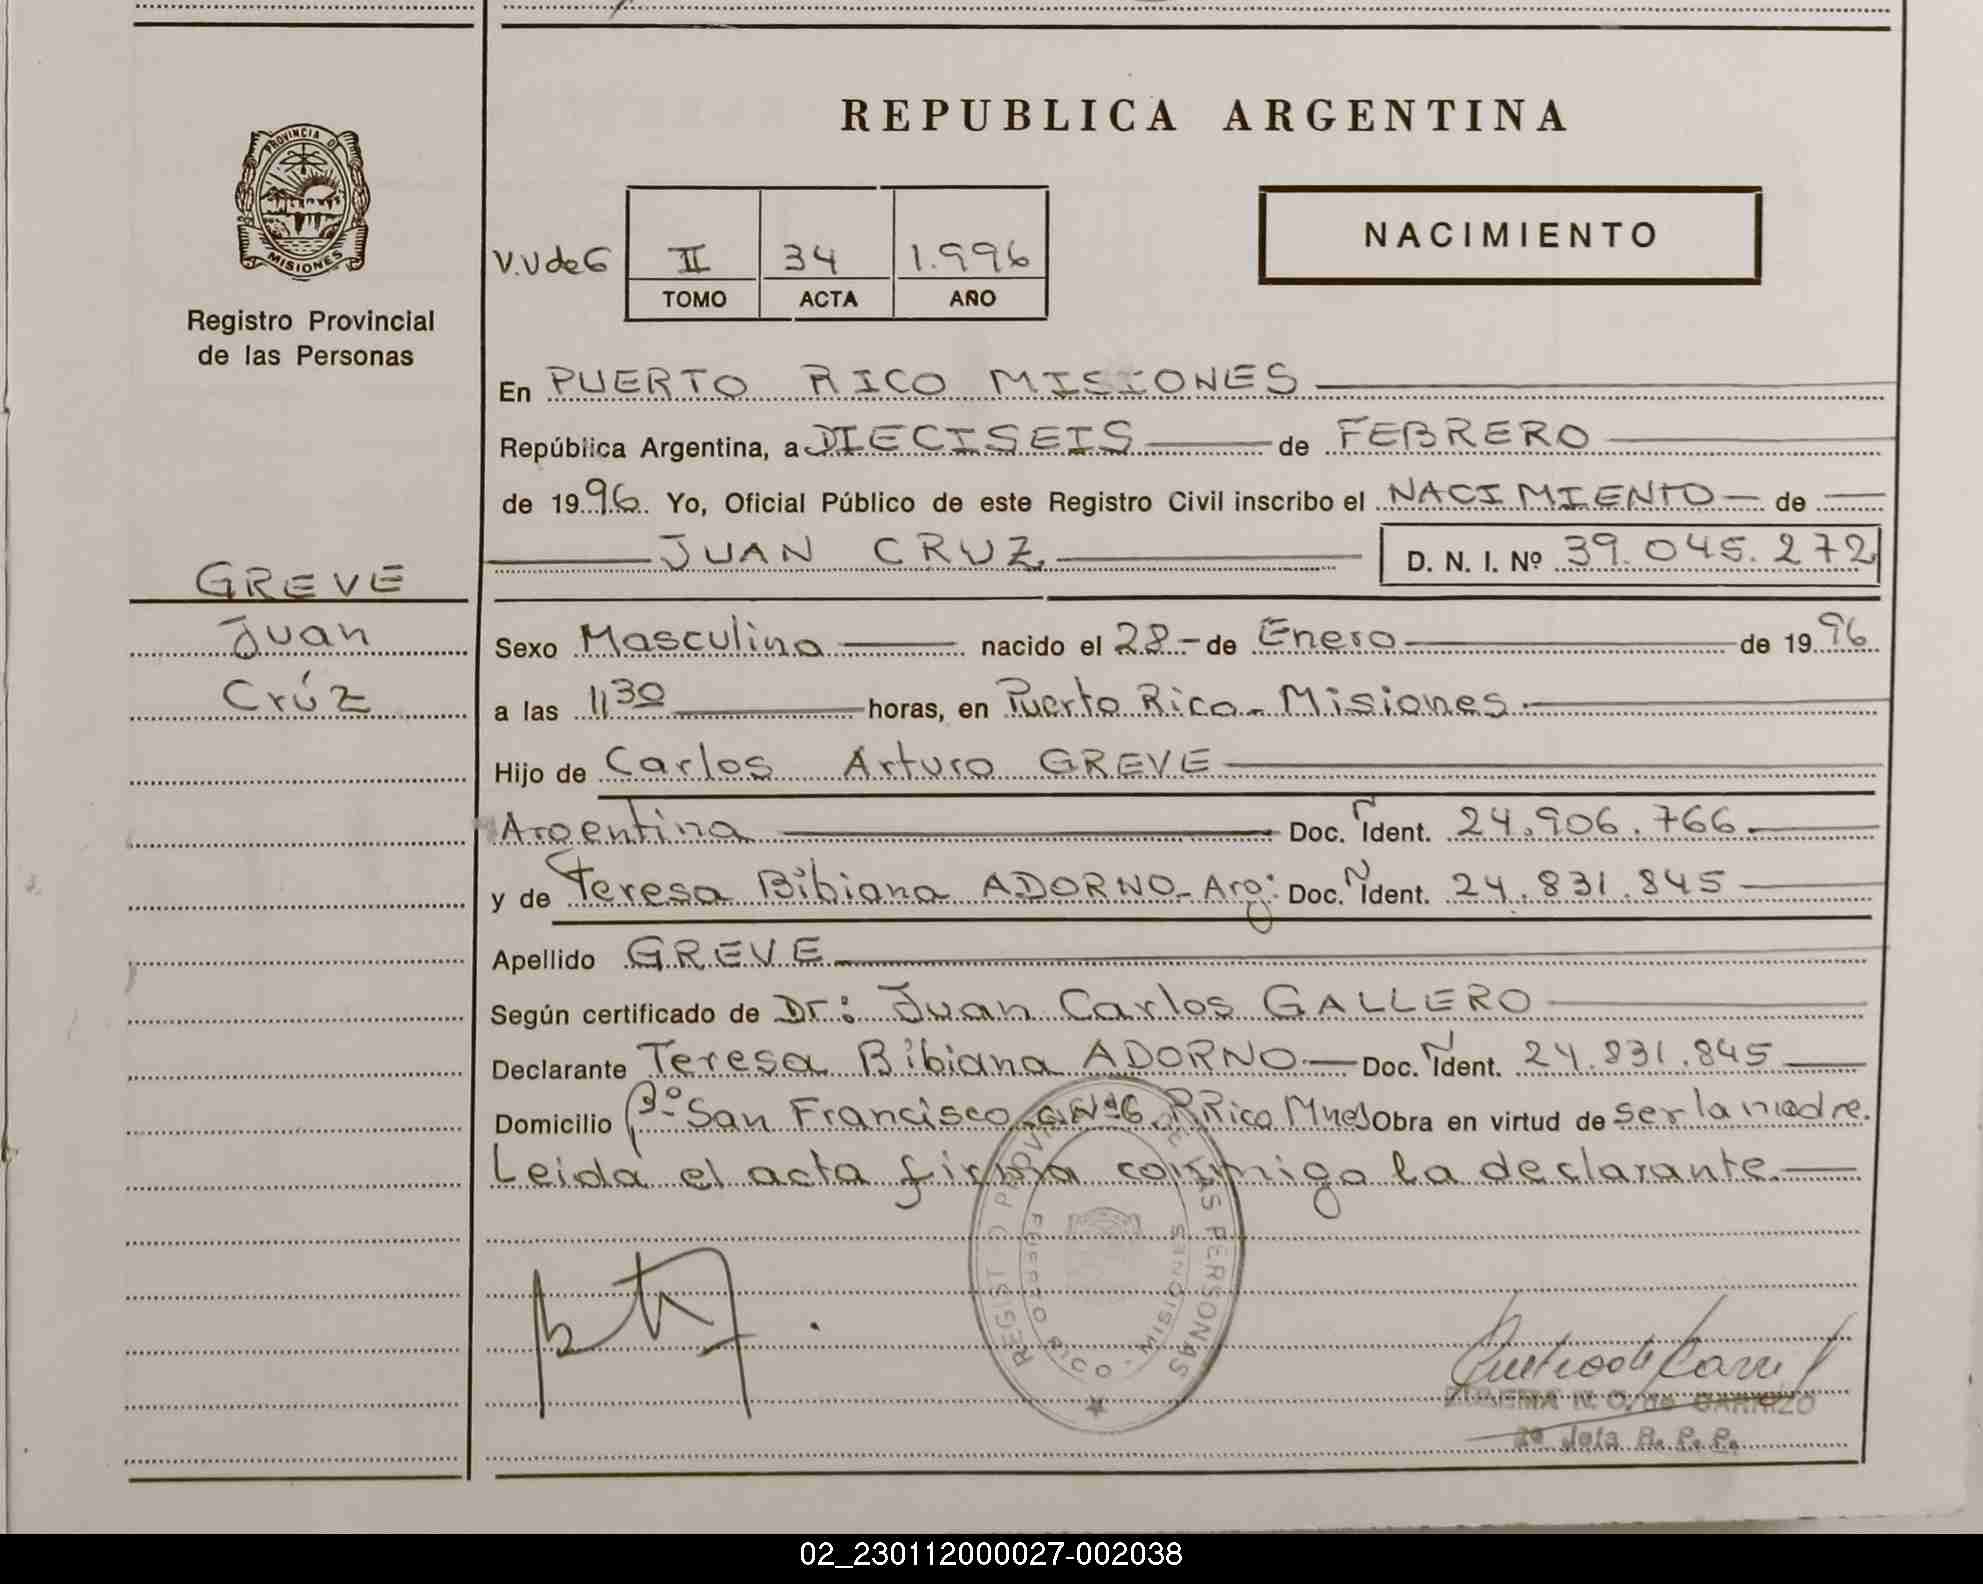 REPUBLICA ARGENTINA
PROVINCIA D
MISIONES
Registro Provincial
de las Personas
V.V de G II 34 1.996
TOMO ACTA AÑO
NACIMIENTO
En PUERTO RICO MISIONES
República Argentina, a DIECISEIS de FEBRERO
de 1996. Yo, Oficial Público de este Registro Civil inscribo el NACIMIENTO de
JUAN CRUZ D. N. I. Nº 39.045.272
GREVE
Juan
Crúz
Sexo Masculino nacido el 28 - de Enero de 1996
a las 11 30 horas, en Puerto Rico - Misiones
Hijo de Carlos Arturo GREVE
Argentina Doc. Ident. 24.906.766
y de Teresa Bibiana ADORNO - Arg: Doc. Ident. 24.831.845
Apellido GREVE
Según certificado de Dr: Juan Carlos GALLERO
Declarante Teresa Bibiana ADORNO Doc. Ident. 24.831.845
Domicilio Bº San Francisco Nº6 P.Rico Mnes Obra en virtud de ser la madre.
Leida el acta firma conmigo la declarante
REGISTRO PROVI DE LAS PERSONAS
PUERTO RICO - MISIONES
N. O. de CARRIZO
2º Jefa R. P. P.
02_230112000027-002038